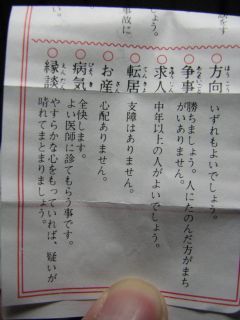 しょう。
事故に
方向 いずれもよいでしょう。
争事 勝ちましょう。人にたのんだ方がまち
がいありません。
求人 中年以上の人がよいでしょう。
転居 支障はありません。
お産 心配ありません。
病気 全快します。
よい医師に診てもらう事です。
縁談 やすらかな心をもっていれば、疑いが
晴れてまとまりましょう。